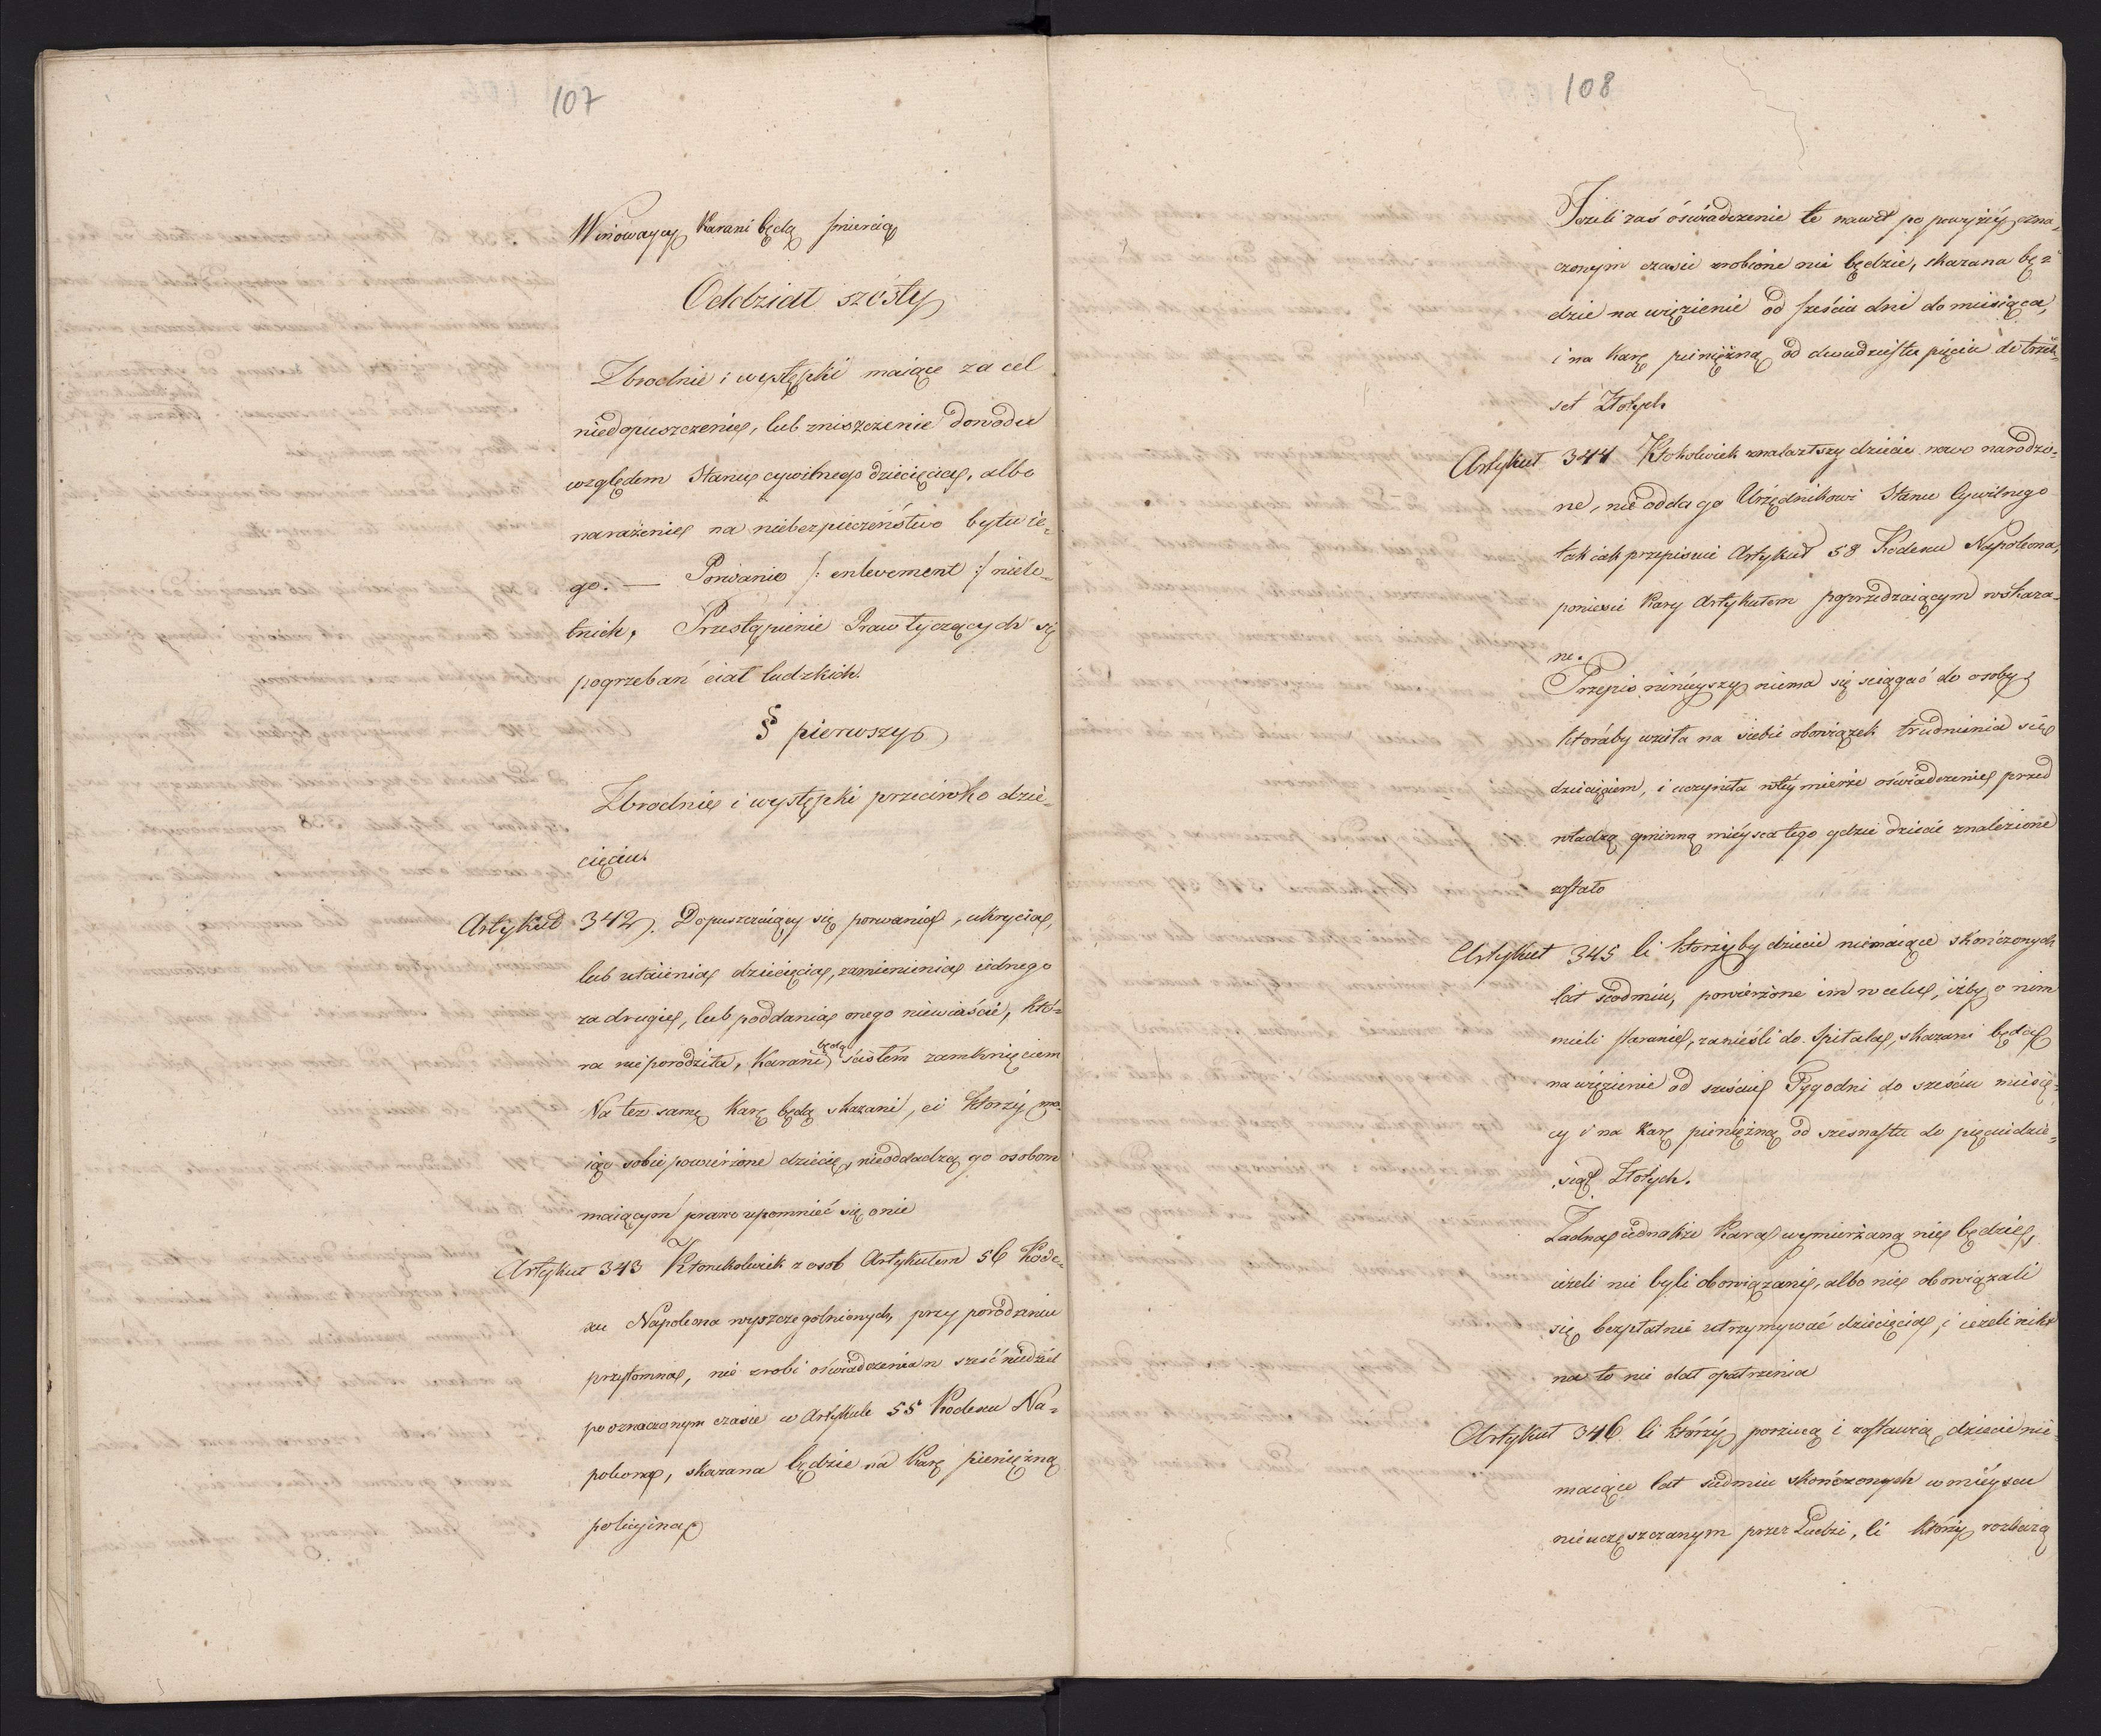 107
Winowaycy Karani będą śmiercią
Oddział szósty
Zbrodnie i występki maiące za cel
niedopuszczenie, lub zniszczenie dowodu
względem Stanu cywilnego dziecięcia, albo
narażenie na niebezpieczeństwo bytu ie„
go. — Porwanie /: enlevement :/ niele„
tnich, Przestąpienie Praw tyczących się
pogrzebań ciał ludzkich.
§ pierwszy
Zbrodnie i występki przeciwko dzie„
cięciu.
Artykuł 342. Dopuszczaiący się porwania, ukrycia,
lub utaienia dziecięcia, zamienienia iednego
za drugie, lub poddania onego niewieście, któ„
ra nie porodziła, Karani będą ścisłém zamknięciem
Na tez samę Karę będą skazani, ci którzy ma„
iąc sobie powierzone dziecię, nieoddadzą go osobom
maiącym prawo upomnieć się o nie
Artykuł 343 Ktorukolwiek z osob Artykułem 56 Kode„
xu Napoleona wyszczegolnionych, przy porodzeniu
przytomna, nie zrobi oświadczenia w sześć niedziel
po oznaczonym czasie w Artykule 55 Kodexu Na„
poleona, skazana będzie na Karę pieniężną
policyiną
108
Jeżeli zaś oświadczenie te nawet po powyżéy ozna„
czonym czasie zrobione nie będzie, skazana bę„
dzie na więzienie od sześciu dni do miesiąca,
i na Karę pieniężną od dwudziestu pięciu do trzech„
set Złotych
Artykuł 344 Ktokolwiek znalazłszy dziecie nowo narodzo„
ne, nie odda go Urzędnikowi Stanu Cywilnego
tak iak przepisuie Artykuł 58 Kodexu Napoleona,
poniesie Kary Artykułem poprzedzaiącym wskaza„
ne.
Przepis ninieyszy niema się sciągać do osoby
któraby wzieła na siebie obowiązek trudnienia się
dziecięciem, i uczyniła w téy mierze oświadczenie przed
władzą gminną mieysca tego gdzie dziecie znalezione
zostało
Artykuł 345 Ci którzyby dziecie niemaiące skończonych
lat siedmiu, powierzone im w celu, iżby o nim
mieli staranie, zanieśli do Spitala, skazani będą
na więzienie od sześciu Tygodni do sześciu miesię„
cy i na Karę pieniężną od szesnastu do pięciudzie„
siąt Złotych.
Żadna iednakże Kara wymierzaną nie będzie,
ieżeli nie byli obowiązani, albo nie obowiązali
się bezpłatnie utrzymywać dziecięcia, i ieżeli nikt
na to nie dał opatrzenia
Artykuł 346. Ci którzy porzucą i zostawią dziecie nie„
maiące lat siedmiu skończonych w mieyscu
nieuczęszczanym przez Ludzi, Ci którzy rozkażą